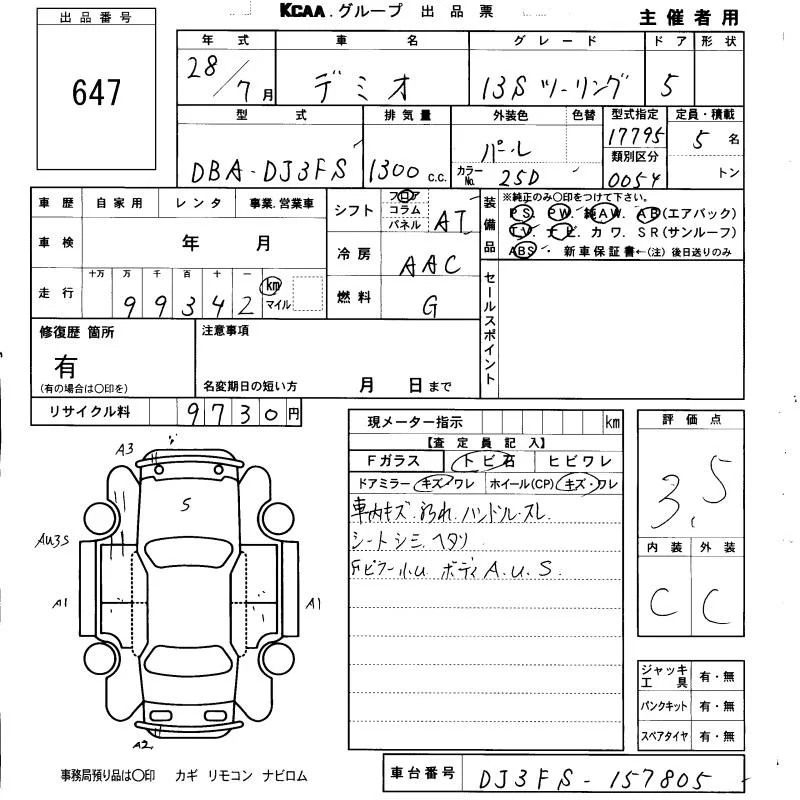 KCAA.グループ 出品票
主催者用
出品番号
647
年式 車名 グレード ドア 形状
28/7月 デミオ 13S ツーリング 5
型式 排気量 外装色 色替 型式指定 定員・積載
DBA-DJ3FS 1300c.c. パール カラーNo. 25D 17795 5名
類別区分 0054 トン
車歴 自家用 レンタ 事業.営業車
車検 年 月
走行 十万 万 千 百 十 一
99342 km マイル
シフト フロア コラム パネル AT
冷房 AAC
燃料 G
装備品
※純正のみ〇印をつけて下さい。
PS. PW. 純AW. AB(エアバック)
TV. ナビ. カワ. SR(サンルーフ)
ABS. 新車保証書←(注)後日送りのみ
セールスポイント
修復歴 箇所
有
(有の場合は〇印を)
注意事項
名変期日の短い方 月 日まで
リサイクル料 9730円
現メーター指示 km
【査定員記入】
Fガラス トビ石 ヒビワレ
ドアミラー キズ・ワレ ホイール(CP) キズ・ワレ
車内キズ.汚れ.ハンドルスレ
シートシミ.ヘタリ
ボディ A.U.S.
評価点
3.5
内装 外装
C C
A3
S
AU3S
A1
A1
A2
ジャッキ工具 有・無
パンクキット 有・無
スペアタイヤ 有・無
事務局預り品は〇印 カギ リモコン ナビロム
車台番号 DJ3FS-157805